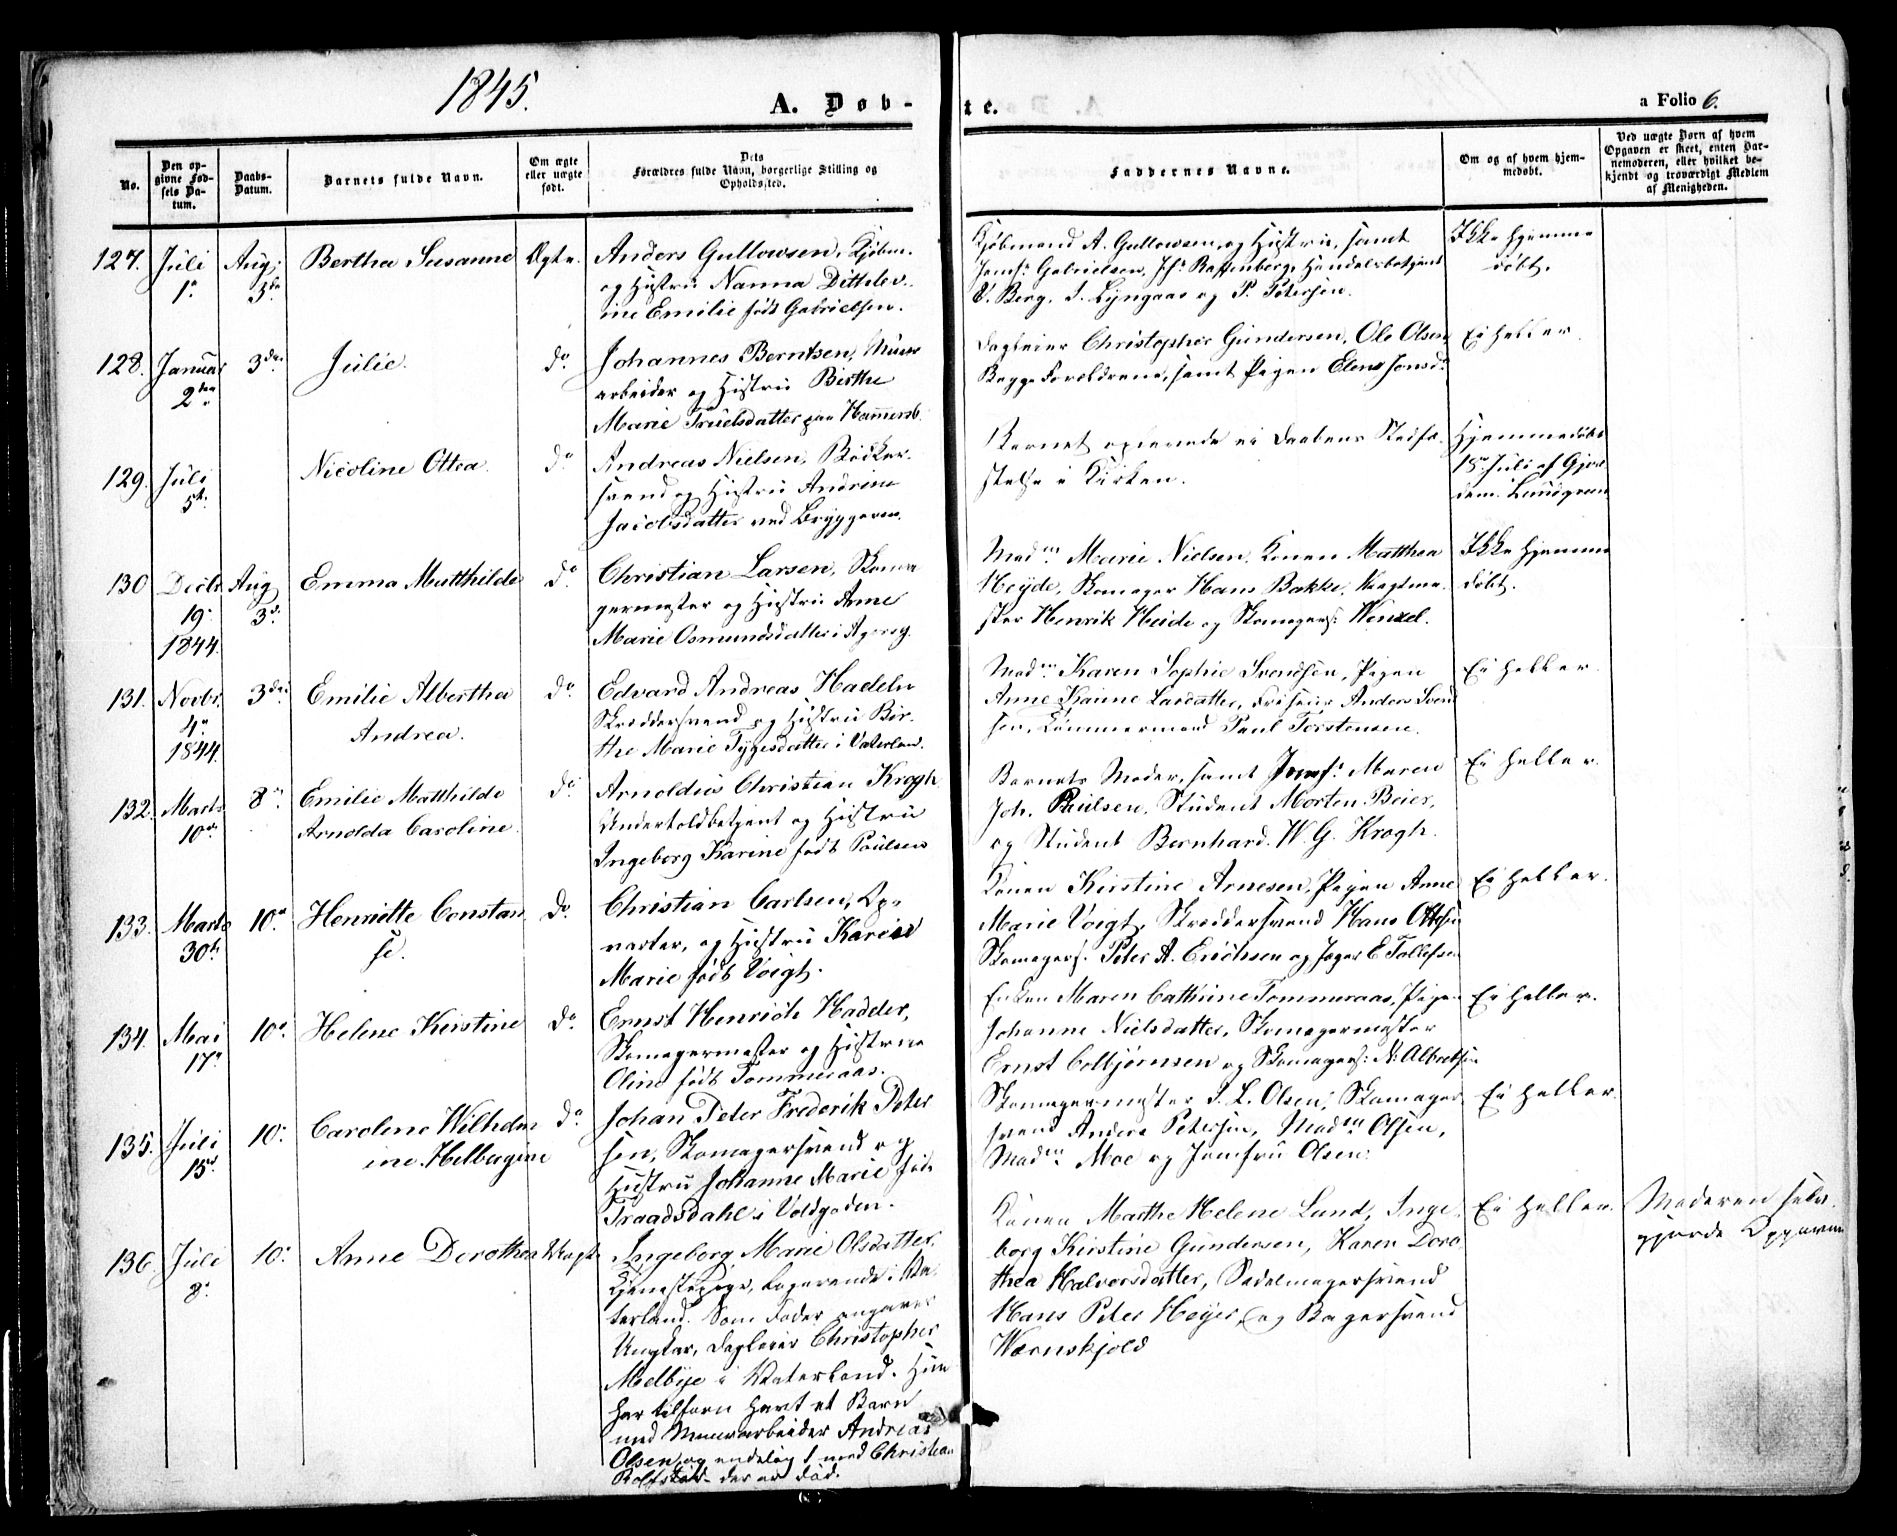 1845.
A. Døb-
te.
a Folio 6.
No.
Den op-
givne Fød-
sels Da-
tum.
Daabs-
Datum.
Barnets fulde Navn.
Om ægte
eller uægte
født.
Dets
Forældres fulde Navn, borgerlige Stilling og
Opholdssted.
Faddernes Navne.
Om og af hvem hjem-
medøbt.
Ved uægte Børn af hvem
Opgaven er skeet, enten Bar-
nemoderen, eller hvilket be-
kjendt og troværdigt Medlem
af Menigheden.
127.
Juli
1ste
Aug.
3die
Bertha Susanne
Ægte.
Anders Gullowsen, Kjøbm.
og Hustru Nanna Dithlev-
ine Emilie født Gabrielsen.
Kjøbmand A. Gullowsen og Hustru, samt
Jomf. Gabrielsen, Handelsbetjent
Berg, Lyngaas og P. Petersen.
Ikke hjemme
døbt.
128.
Januar
2den
3die
Julie.
do
Johannes Berntsen, Muur
arbeider og Hustru Birthe
Marie Truelsdatter paa Hammersb.
Dagleier Christopher Gundersen, Ole Olsen,
Begge Forældrene, samt Pigen Elene Jonsd.
Ei heller.
129.
Juli
5te
Nicoline Ottea.
do
Andreas Nielsen, Bødker-
svend og Hustru Andrine
Jacobsdatter ved Bryggeren.
Barnet oplevede ei Daabens Stadfæ-
stelse i Kirken.
Hjemmedøbt
18de Juli af Gjor
dem. Lundgreen
130
Decbr.
19.
1844.
Aug
3d.
Emma Matthilde
do
Christian Larsen, Skoma
germester og Hustru Anne
Marie Osmundsdatter i Agersg.
Madm. Marie Nielsen, Konen Matthea
Heyde, Skomager Hans Bakke, Vægtme-
ster Henrik Heide og Skomagers. Wenzel.
Ikke hjemme
døbt.
131.
Novbr.
4de
1844.
3die
Emilie Albertha
Andrea.
do
Edvard Andreas Hadeln
Skræddersvend og Hustru Bir-
the Marie Tygesdatter i Vaterland.
Madm. Karen Sophie Svendsen, Pigen
Anne Karine Larsdatter, Friseur Anders Svend
sen, Tømmermand Paul Torstensen.
Ei heller.
132.
Marts
10de
8de
Emilie Matthilde
Arnolda Caroline.
do
Arnoldus Christian Krogh
Undertoldbetjent og Hustru
Ingeborg Karine født Paulsen
Barnets Moder, samt Jomf. Maren
Joh. Paulsen, Student Morten Beier,
og Student Bernhard. W. G. Krogh.
Ei heller.
133.
Marts
30te
10de
Henriette Constan
se.
do
Christian Carlsen, Op-
varter, og Hustru Karine
Marie født Voigt.
Konen Kirstine Arnesen, Pigen Anne
Marie Voigt, Skræddersvend Hans Ottesen
Skomagers. Peter A. Erichsen og Jæger E Tollefsen
Ei heller.
134.
Mai
17de
10de
Helene Kirstine
do
Ernst Henrich Hadeler,
Skomagermester og Hustrue
Oline født Tommeraas.
Enken Maren Cathrine Tommeraas, Pigen
Johanne Nielsdatter, Skomagermester
Ernst Colbjørnsen og Skomagers: N: Albretsen
Ei heller.
135.
Juli
15de
10.
Caroline Wilhelm
ine Helbergine
do
Johan Peter Frederik Peter
sen, Skomagersvend og
Hustru Johanne Marie født
Traadsdahl i Voldgaden.
Skomagermester J. L. Olsen, Skomager
svend Anders Petersen, Madm. Olsen,
Madm. Moe og Jomfru Olsen.
Ei heller.
136.
Juli
8.
10.
Anne Dorothea
Uægte
Ingeborg Marie Olsdatter,
Tjenestepige, logerende i Va-
terland. Som Fader angaves
Ungkar, Dagleier Christopher
Melbye i Vaterland. Hun
har tilforn havt et Barn
med Muurarbeider Andreas
Olsen, og endelig 1 med Christian
der er død.
Konen Marthe Helene Lund, Inge-
borg Kirstine Gundersen, Karen Doro
thea Halvorsdatter, Sadelmagersvend
Hans Peter Høyer, og Bagersvend
Wærnskjold
Ei heller.
Moderen selv
gjorde Opgaven